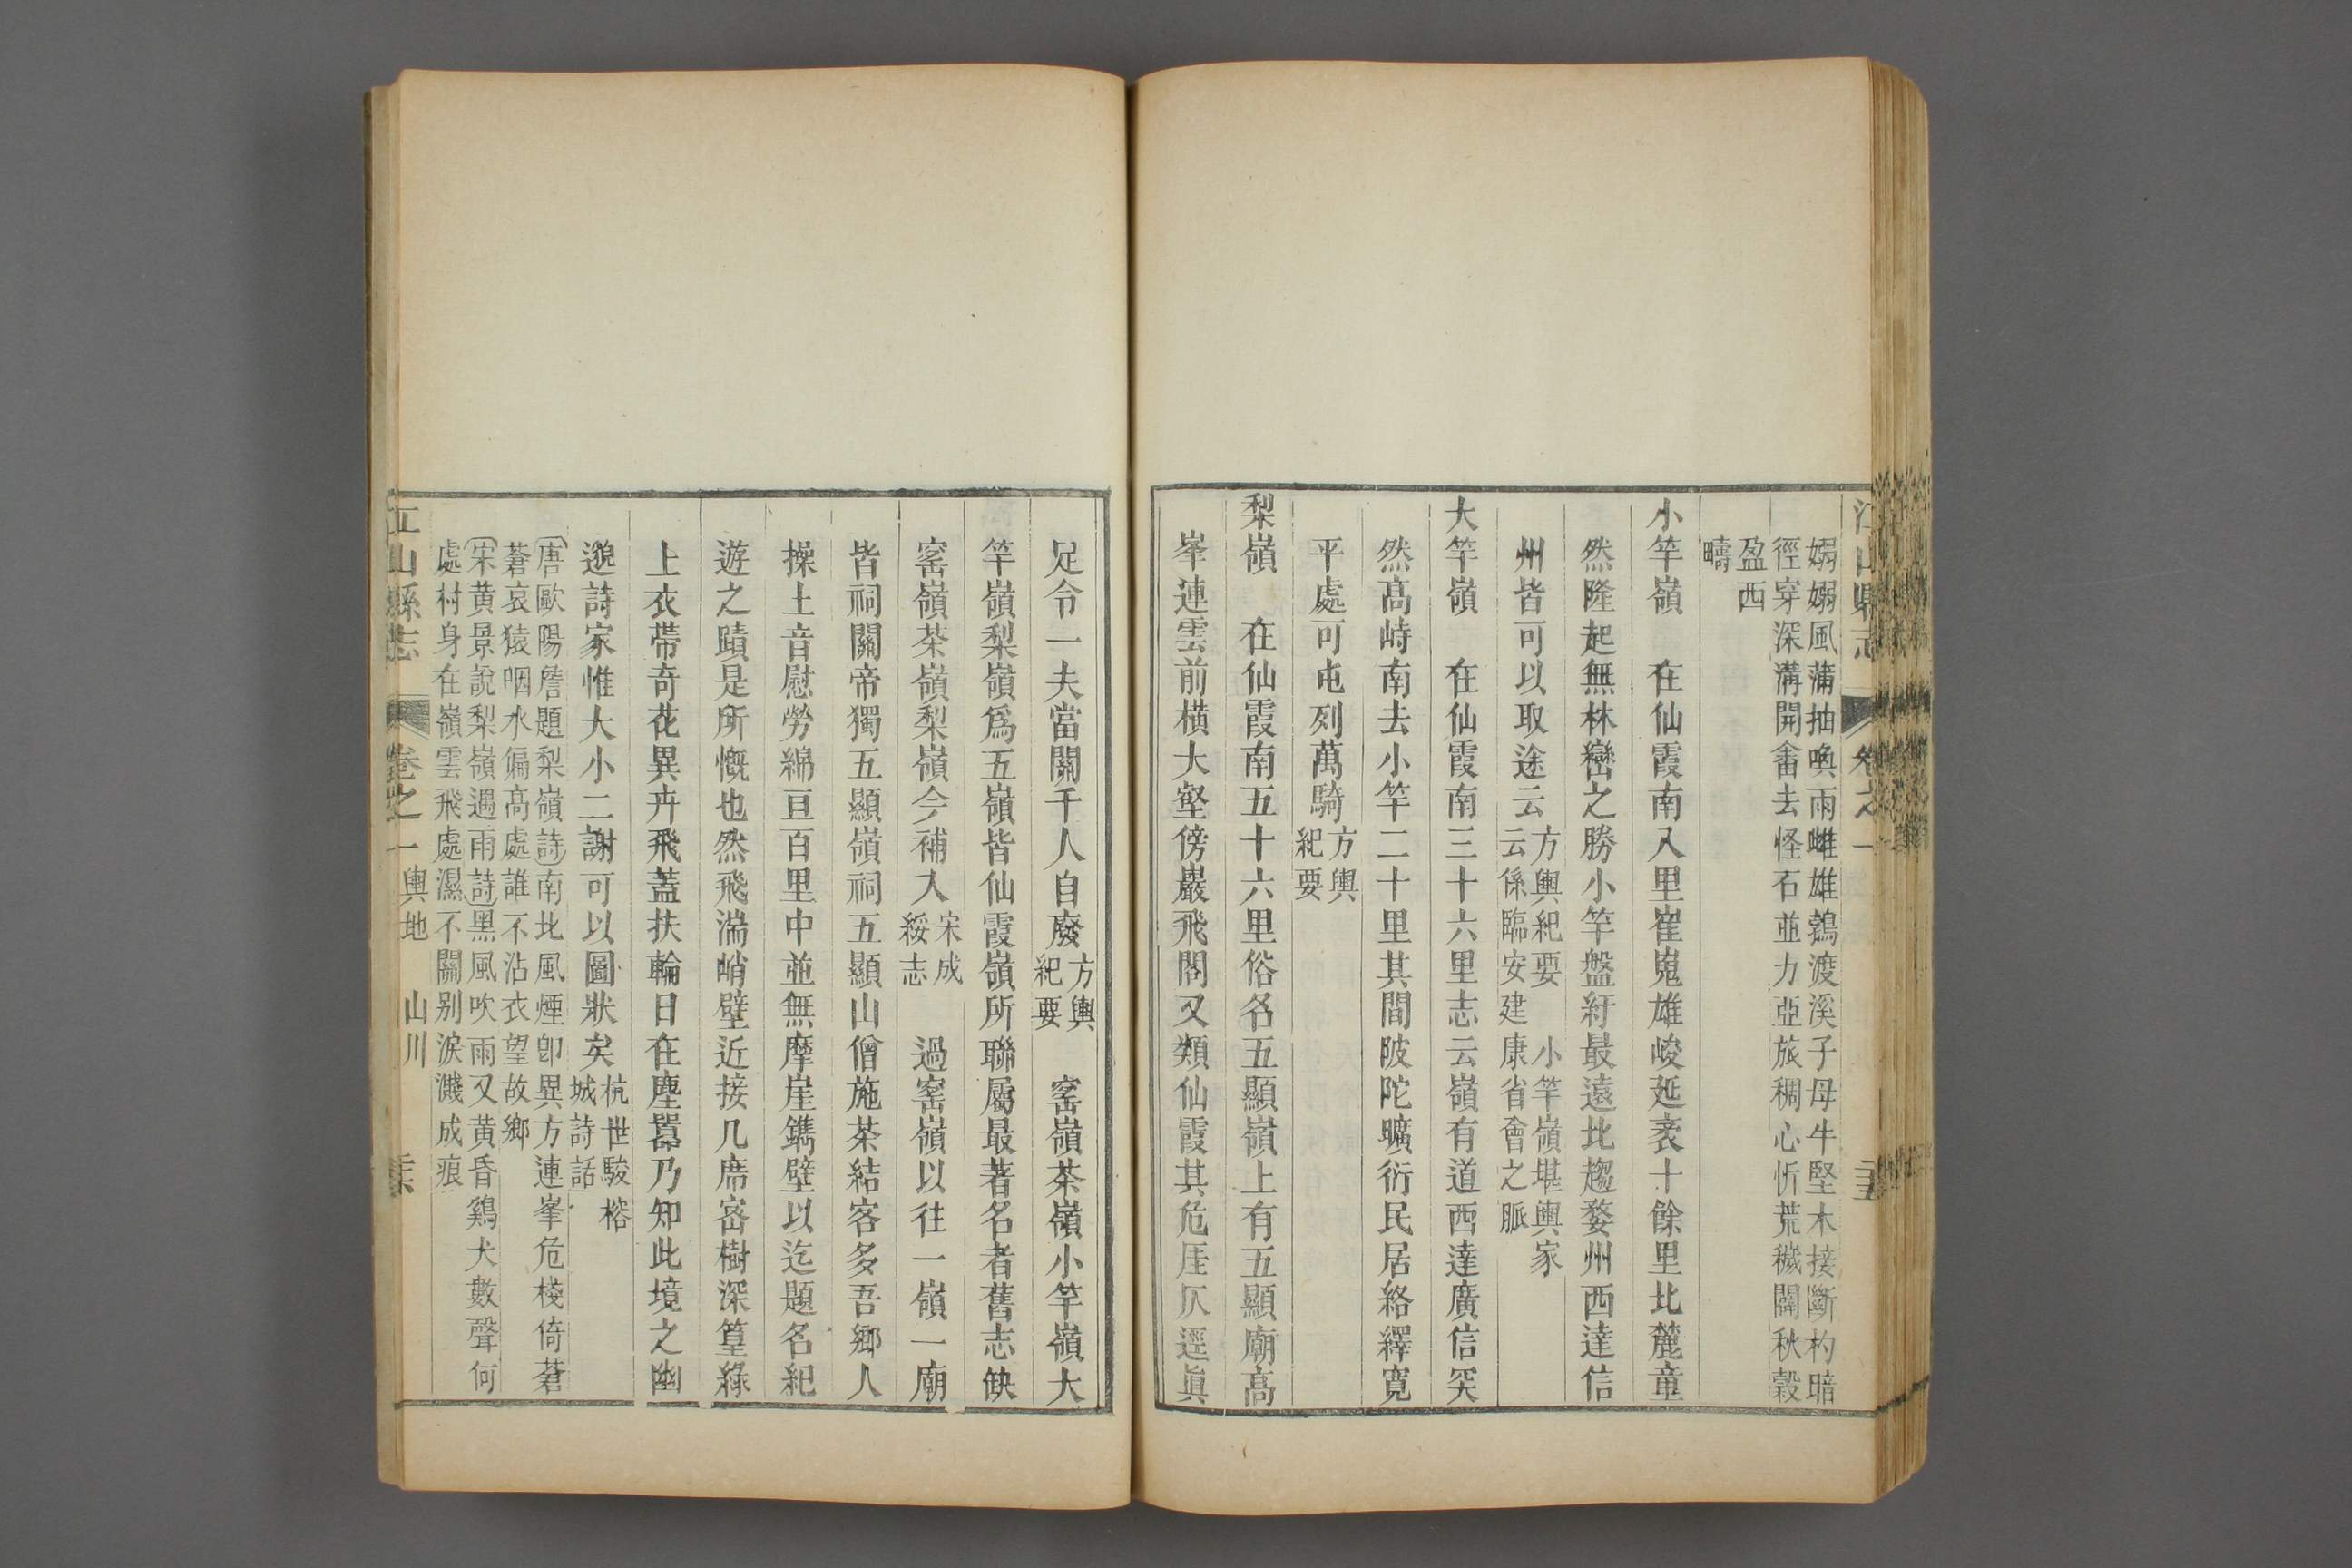 江山縣志 卷之一 二十五
嫋嫋風蒲抽喚雨雌雄鵓渡溪子母牛堅木接斷杓暗
徑穿深溝開畬去怪石並力亞旅稠心忻荒穢闢秋穀
盈西
疇
小竿嶺 在仙霞南八里崔嵬雄峻延袤十餘里北麓童
然隆起無林巒之勝小竿盤紆最遠北趨婺州西達信
州皆可以取途云方輿紀要 小竿嶺堪輿家
云係臨安建康省會之脈
大竿嶺 在仙霞南三十六里志云嶺有道西達廣信突
然高峙南去小竿二十里其間陂陀曠衍民居絡繹寬
平處可屯列萬騎方輿
紀要
梨嶺 在仙霞南五十六里俗名五顯嶺上有五顯廟高
峯連雲前橫大壑傍巖飛閣又類仙霞其危厓仄逕眞
足令一夫當關千人自廢方輿
紀要 窰嶺茶嶺小竿嶺大
竿嶺梨嶺爲五嶺皆仙霞嶺所聯屬最著名者舊志缺
窰嶺茶嶺梨嶺今補入宋成
綏志 過窰嶺以往一嶺一廟
皆祠關帝獨五顯嶺祠五顯山僧施茶結客多吾鄉人
操土音慰勞綿亘百里中並無摩崖鐫壁以迄題名紀
遊之蹟是所慨也然飛湍峭壁近接几席密樹深篁綠
上衣帶奇花異卉飛蓋扶輪日在塵囂乃知此境之幽
邈詩家惟大小二謝可以圖狀矣杭世駿榕
城詩話
唐歐陽詹題梨嶺詩南北風煙卽異方連峯危棧倚蒼
蒼哀猿咽水偏高處誰不沾衣望故鄉
宋黄景說梨嶺遇雨詩黑風吹雨又黄昏鷄犬數聲何
處村身在嶺雲飛處濕不關别淚濺成痕
江山縣志 卷之一 輿地 山川 二十六